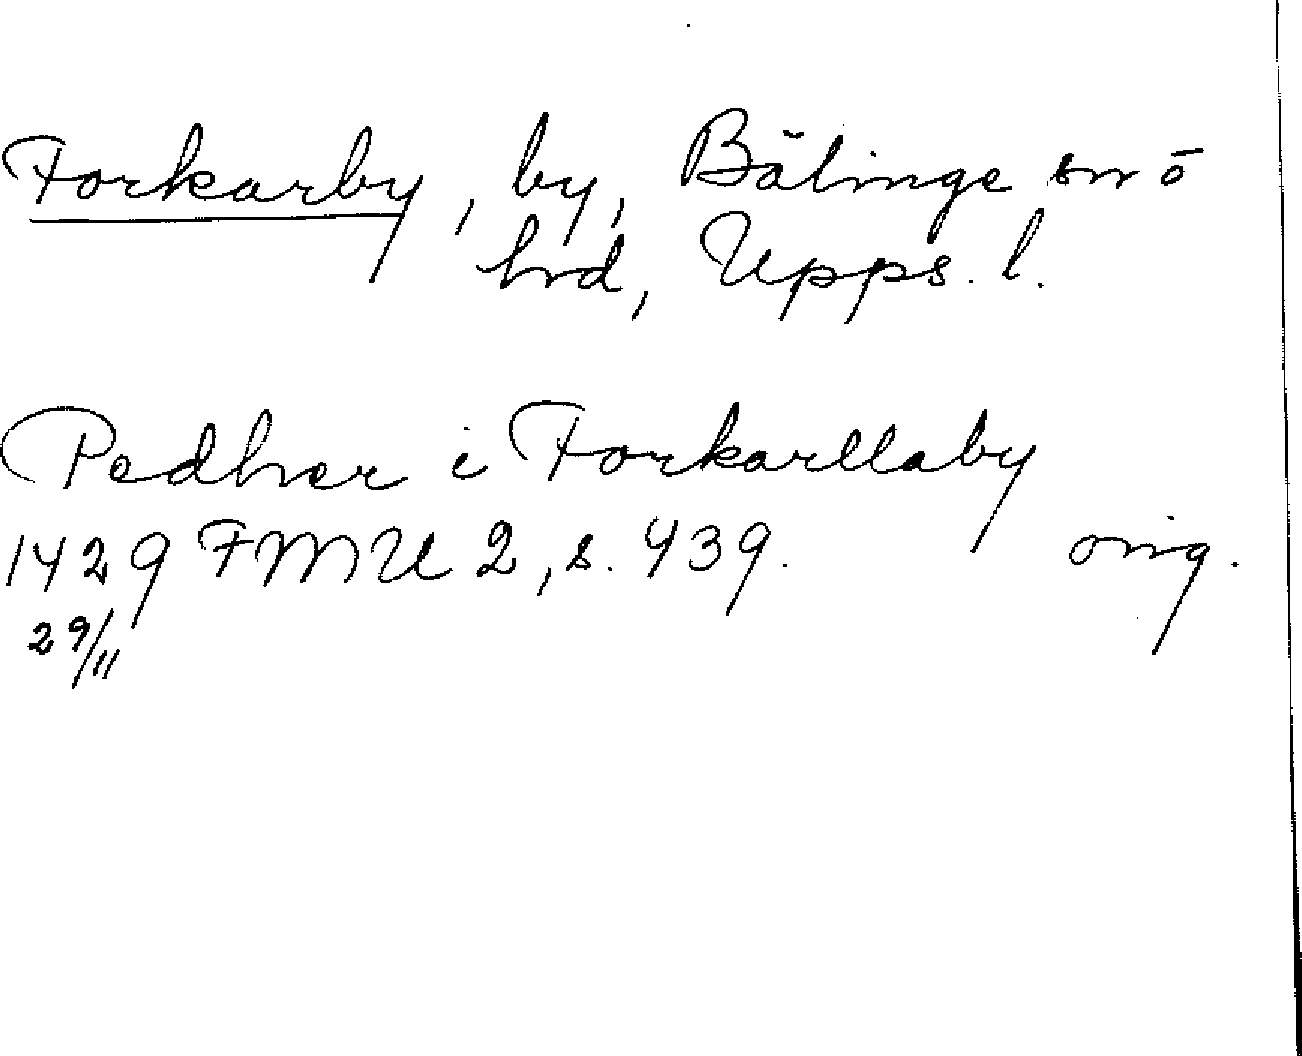 Forkarby, by, Bälinge sn o
hrd, Upps. l.
Pedher i Forkarllaby
1429 FMU 2, s. 439. orig.
29/11